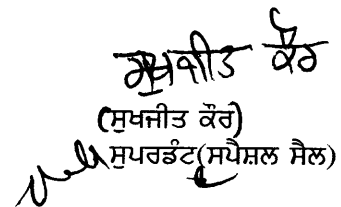 ਸੁਖਜੀਤ ਕੌਰ
(ਸੁਖਜੀਤ ਕੌਰ)
ਸੁਪਰਡੰਟ(ਸਪੈਸ਼ਲ ਸੈਲ)